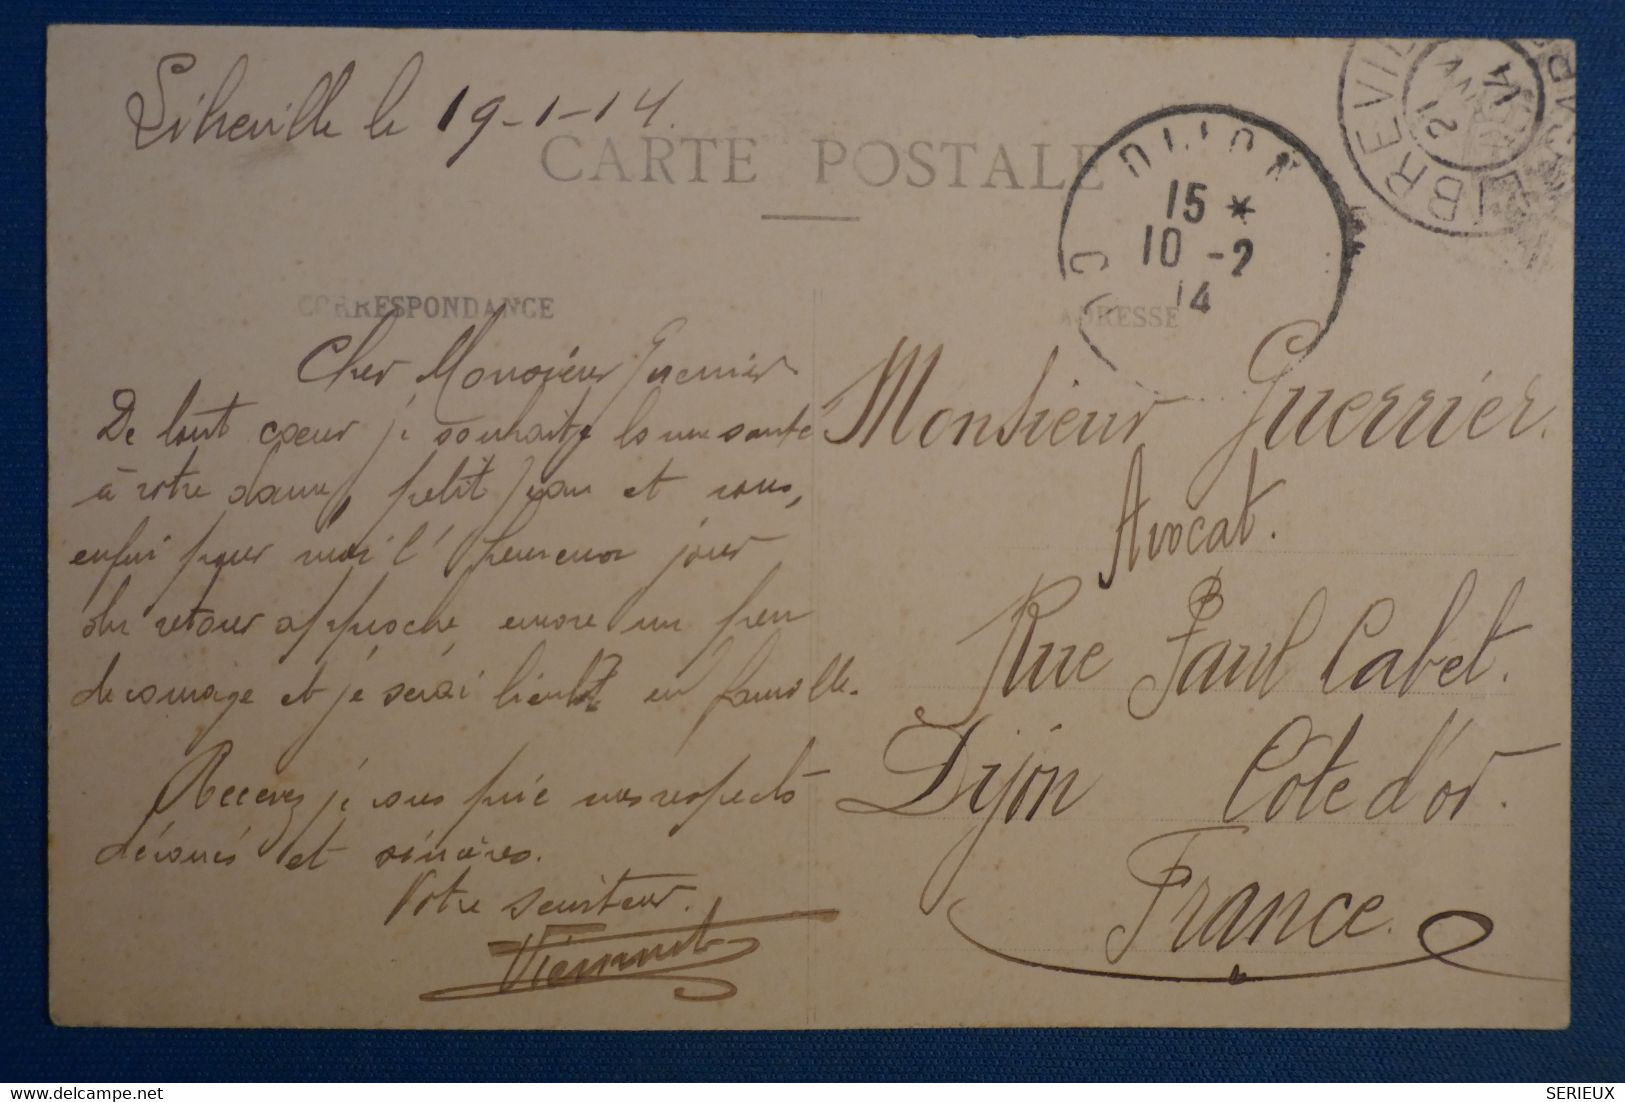 Libreville le 19-1-14.
CARTE POSTALE
DIJON
15 *
10 -2
14
IBREVIL
21
14
CORRESPONDANCE
ADRESSE
Cher Monsieur Guerrier
De tout cœur je souhaite bonne santé
à votre dame, petit Jean et vous,
enfin pour moi l'heureux jour
du retour approche encore un peu
de courage et je serai bientôt en famille.
Recevez je vous prie mes respects
dévoués et sincères.
Votre serviteur.
Monsieur Guerrier.
Avocat.
Rue Paul Cabet.
Dijon Côte d'or.
France.
delcampe.net
SERIEUX